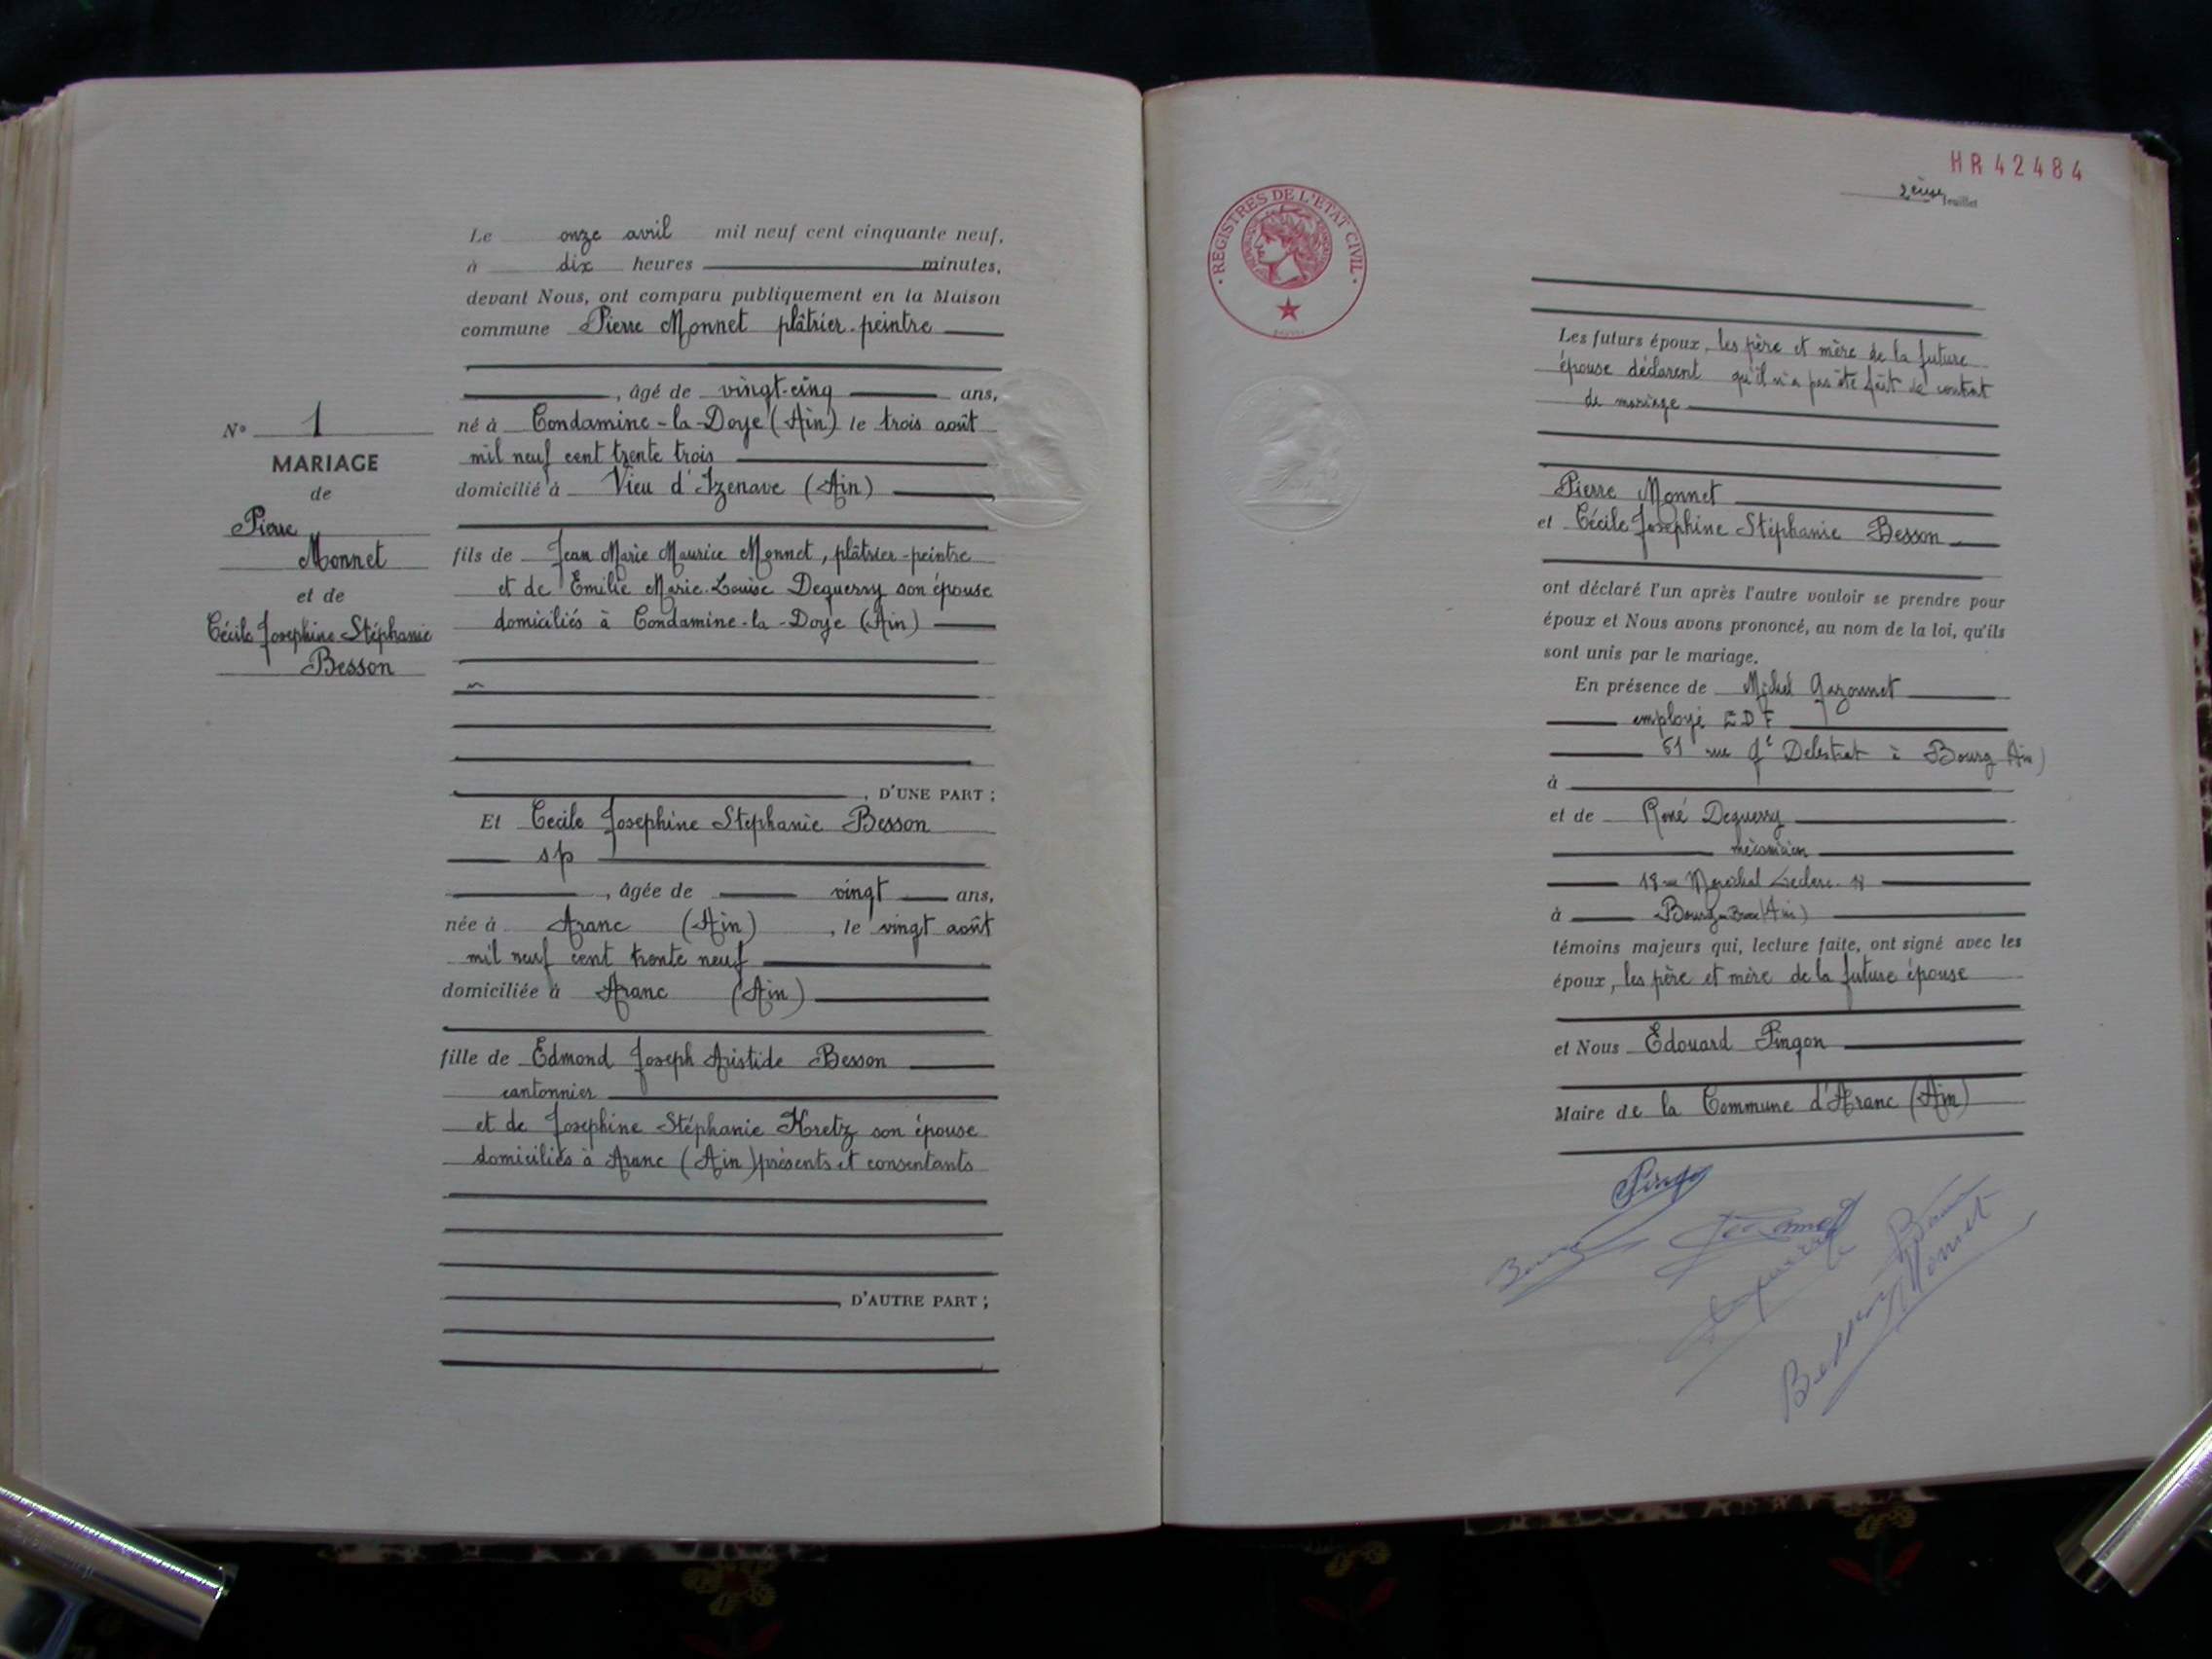 Le onze avril mil neuf cent cinquante neuf,
à dix heures minutes,
devant Nous, ont comparu publiquement en la Maison
commune Pierre Monnet plâtrier-peintre
, âgé de vingt-cinq ans,
né à Condamine-la-Doye (Ain) le trois août
mil neuf cent trente trois
domicilié à Vieu d'Izenave (Ain)
fils de Jean Marie Maurice Monnet, plâtrier-peintre
et de Emilie Marie-Louise Deguerry son épouse
domiciliés à Condamine-la-Doye (Ain)
, D'UNE PART ;
Et Cecile Josephine Stephanie Besson
sp
, âgée de vingt ans,
née à Aranc (Ain) , le vingt août
mil neuf cent trente neuf
domiciliée à Aranc (Ain)
fille de Edmond Joseph Aristide Besson
cantonnier
et de Josephine Stéphanie Kretz son épouse
domiciliés à Aranc (Ain) présents et consentants
, D'AUTRE PART ;
N° 1
MARIAGE
de
Pierre
Monnet
et de
Cécile Josephine Stéphanie
Besson
HR 42484
2ème feuillet
REGISTRES DE L'ETAT CIVIL
Les futurs époux, les père et mère de la future
épouse déclarent qu'il n'a pas été fait de contrat
de mariage
Pierre Monnet
et Cécile Josephine Stéphanie Besson
ont déclaré l'un après l'autre vouloir se prendre pour
époux et Nous avons prononcé, au nom de la loi, qu'ils
sont unis par le mariage.
En présence de Michel
employé EDF
61 rue Gl Delestrat à Bourg Ain)
à
et de René Deguerry
mécanicien
18 rue Maréchal Leclerc
à Bourg (Ain)
témoins majeurs qui, lecture faite, ont signé avec les
époux, les père et mère de la future épouse
et Nous Edouard Pingon
Maire de la Commune d'Aranc (Ain)
Besson
Monnet